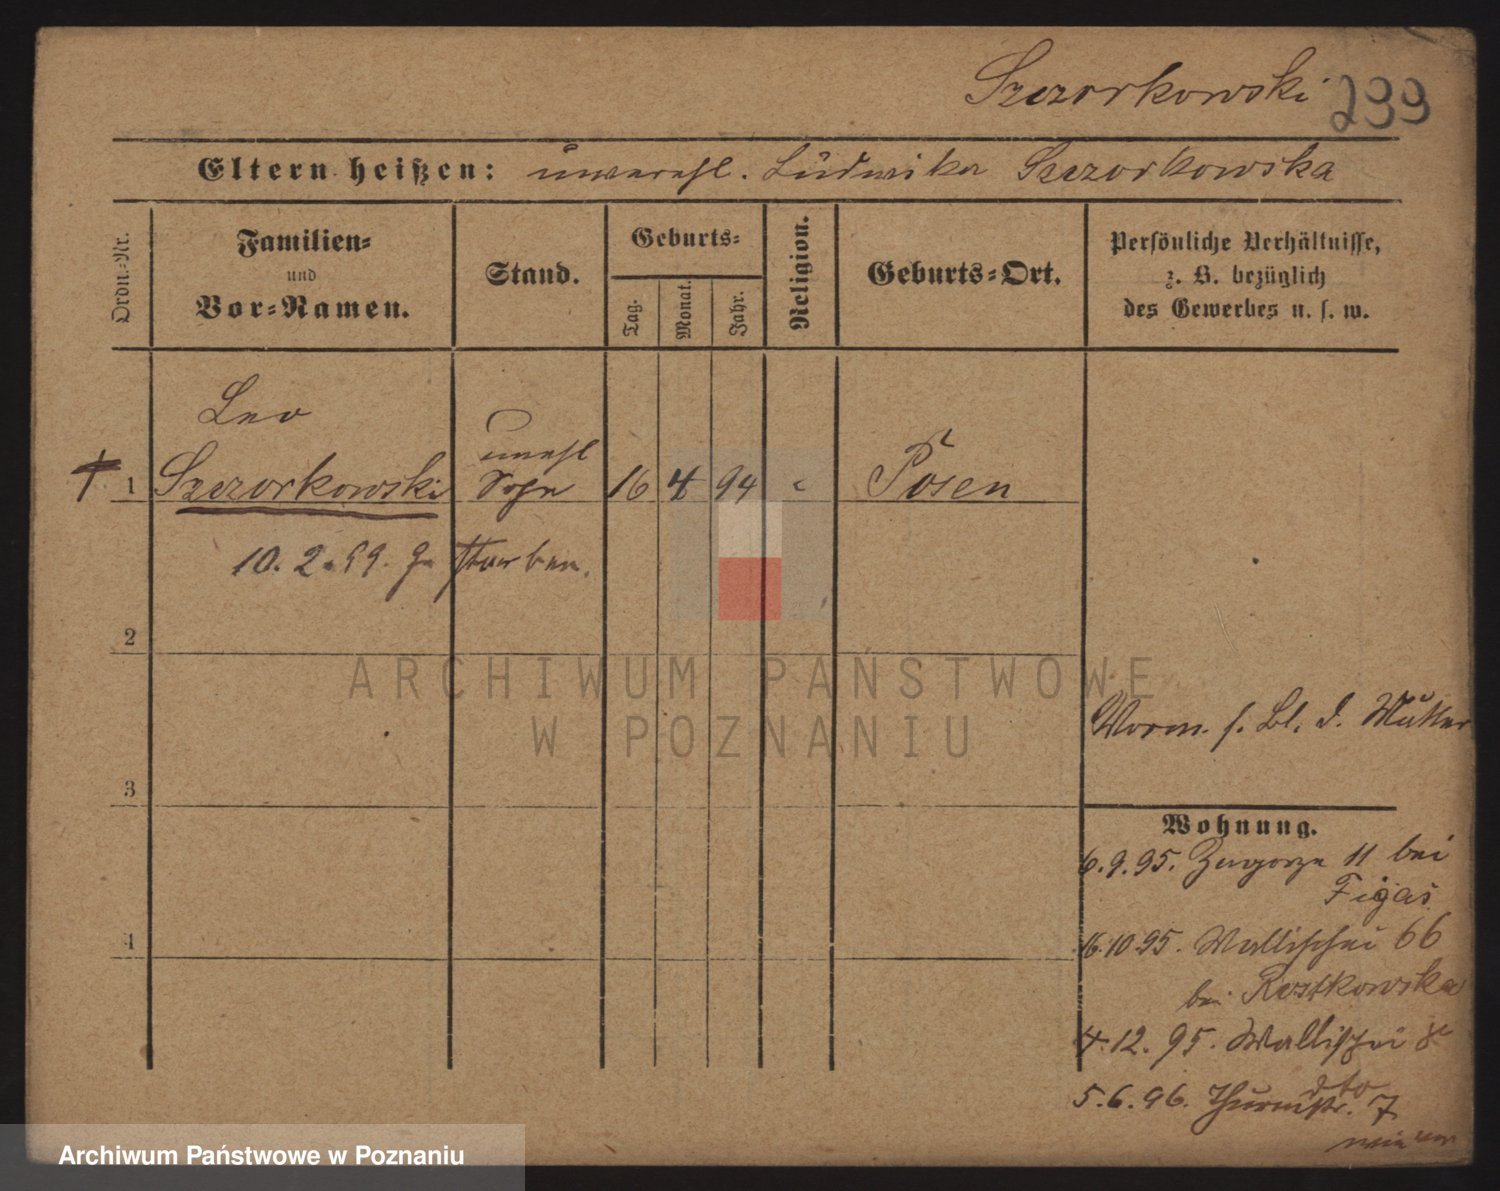 Szczorkowski 299
Eltern heißen: unverehl. Ludwika Szczorkowska
Ordn.-Nr.
Familien-
und
Vor-Namen.
Stand.
Geburts-
Tag.
Monat.
Jahr.
Religion.
Geburts-Ort.
Persönliche Verhältnisse,
z. B. bezüglich
des Gewerbes u. s. w.
Leo
unehl
† 1 Szczorkowski Sohn 16 4 94 Posen
10. 2. 99. gestorben.
2
ARCHIWUM PAŃSTWOWE
W POZNANIU
Vorm. s. Bl. d. Mutter
3
Wohnung.
6.9.95. Zagorze 11 bei
Figas
16.10.95. Wallischei 66
4
bei Rostkowska
4.12.95. Wallischei
dto
5.6.96. Thurmstr. 7
Archiwum Państwowe w Poznaniu